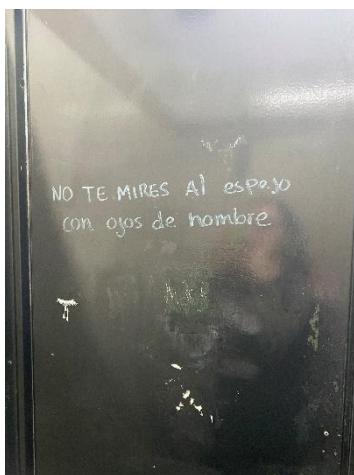 NO TE MIRES Al espejo
con ojos de hombre